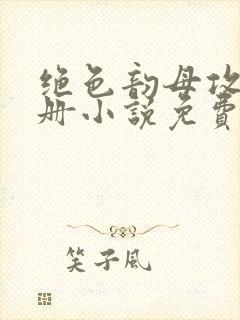 绝色韵母攻
册小说免费
笑子风